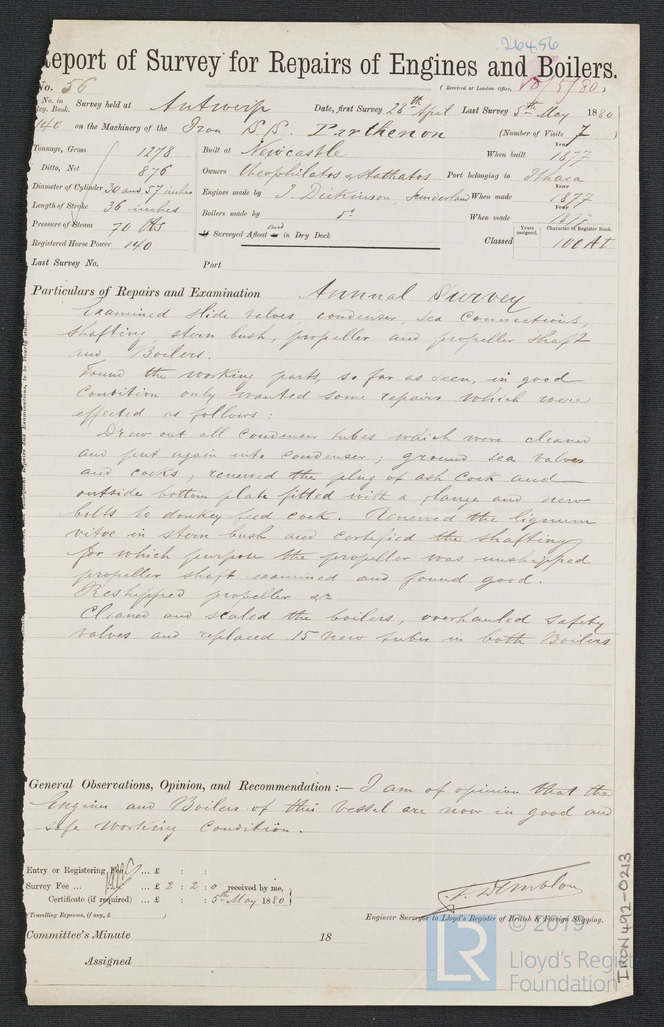 26456
Report of Survey for Repairs of Engines and Boilers.
No. 56
(Received at London Office, 10/5/80)
No. in Reg. Book. Survey held at Antwerp Date, first Survey 28th April Last Survey 5th May 1880
140 on the Machinery of the Iron S.S. Parthenon (Number of Visits 7)
Tonnage, Gross 1278 Built at Newcastle When built Year 1877
Ditto, Net 876 Owners Theophilatos & Stathatos Port belonging to Ithaca
Diameter of Cylinder 30 and 57 inches Engines made by J. Dickinson, Sunderland When made Year 1877
Length of Stroke 36 inches Boilers made by do When made 1877
Pressure of Steam 70 lbs if Surveyed Afloat or and in Dry Dock Classed Years assigned. Character in Register Book. 100 A1
Registered Horse Power 140
Last Survey No. Port
Particulars of Repairs and Examination Annual Survey
Examined slide valves, condenser, sea connections,
shafting, stern bush, propeller and propeller shaft
and Boilers.
Found the working parts, so far as seen, in good
condition only wanted some repairs which were
effected as follows:
Drew out all condenser tubes which were cleaned
and put again into condenser; ground sea valves
and cocks; renewed the plug of ash cock and
outside bottom plate fitted with a flange and new
bolts to donkey feed cock. Renewed the lignum
vitae in stern bush and certified the shafting
for which purpose the propeller was unshipped
propeller shaft examined and found good.
Reshipped propeller &c
Cleaned and scaled the boilers, overhauled safety
valves and replaced 15 new tubes in both Boilers
General Observations, Opinion, and Recommendation:— I am of opinion that the
Engines and Boilers of this vessel are now in good and
safe working condition.
Entry or Registering Fee ... £ : :
Survey Fee ... ... £ 2 : 2 : 0 received by me,
Certificate (if required) ... £ : : 5th May 1880
(Travelling Expenses, if any, £ )
Engineer Surveyor to Lloyd's Register of British & Foreign Shipping.
Committee's Minute 18
Assigned
IRON 492-0213
LR
© 2019
Lloyd's Register
Foundation